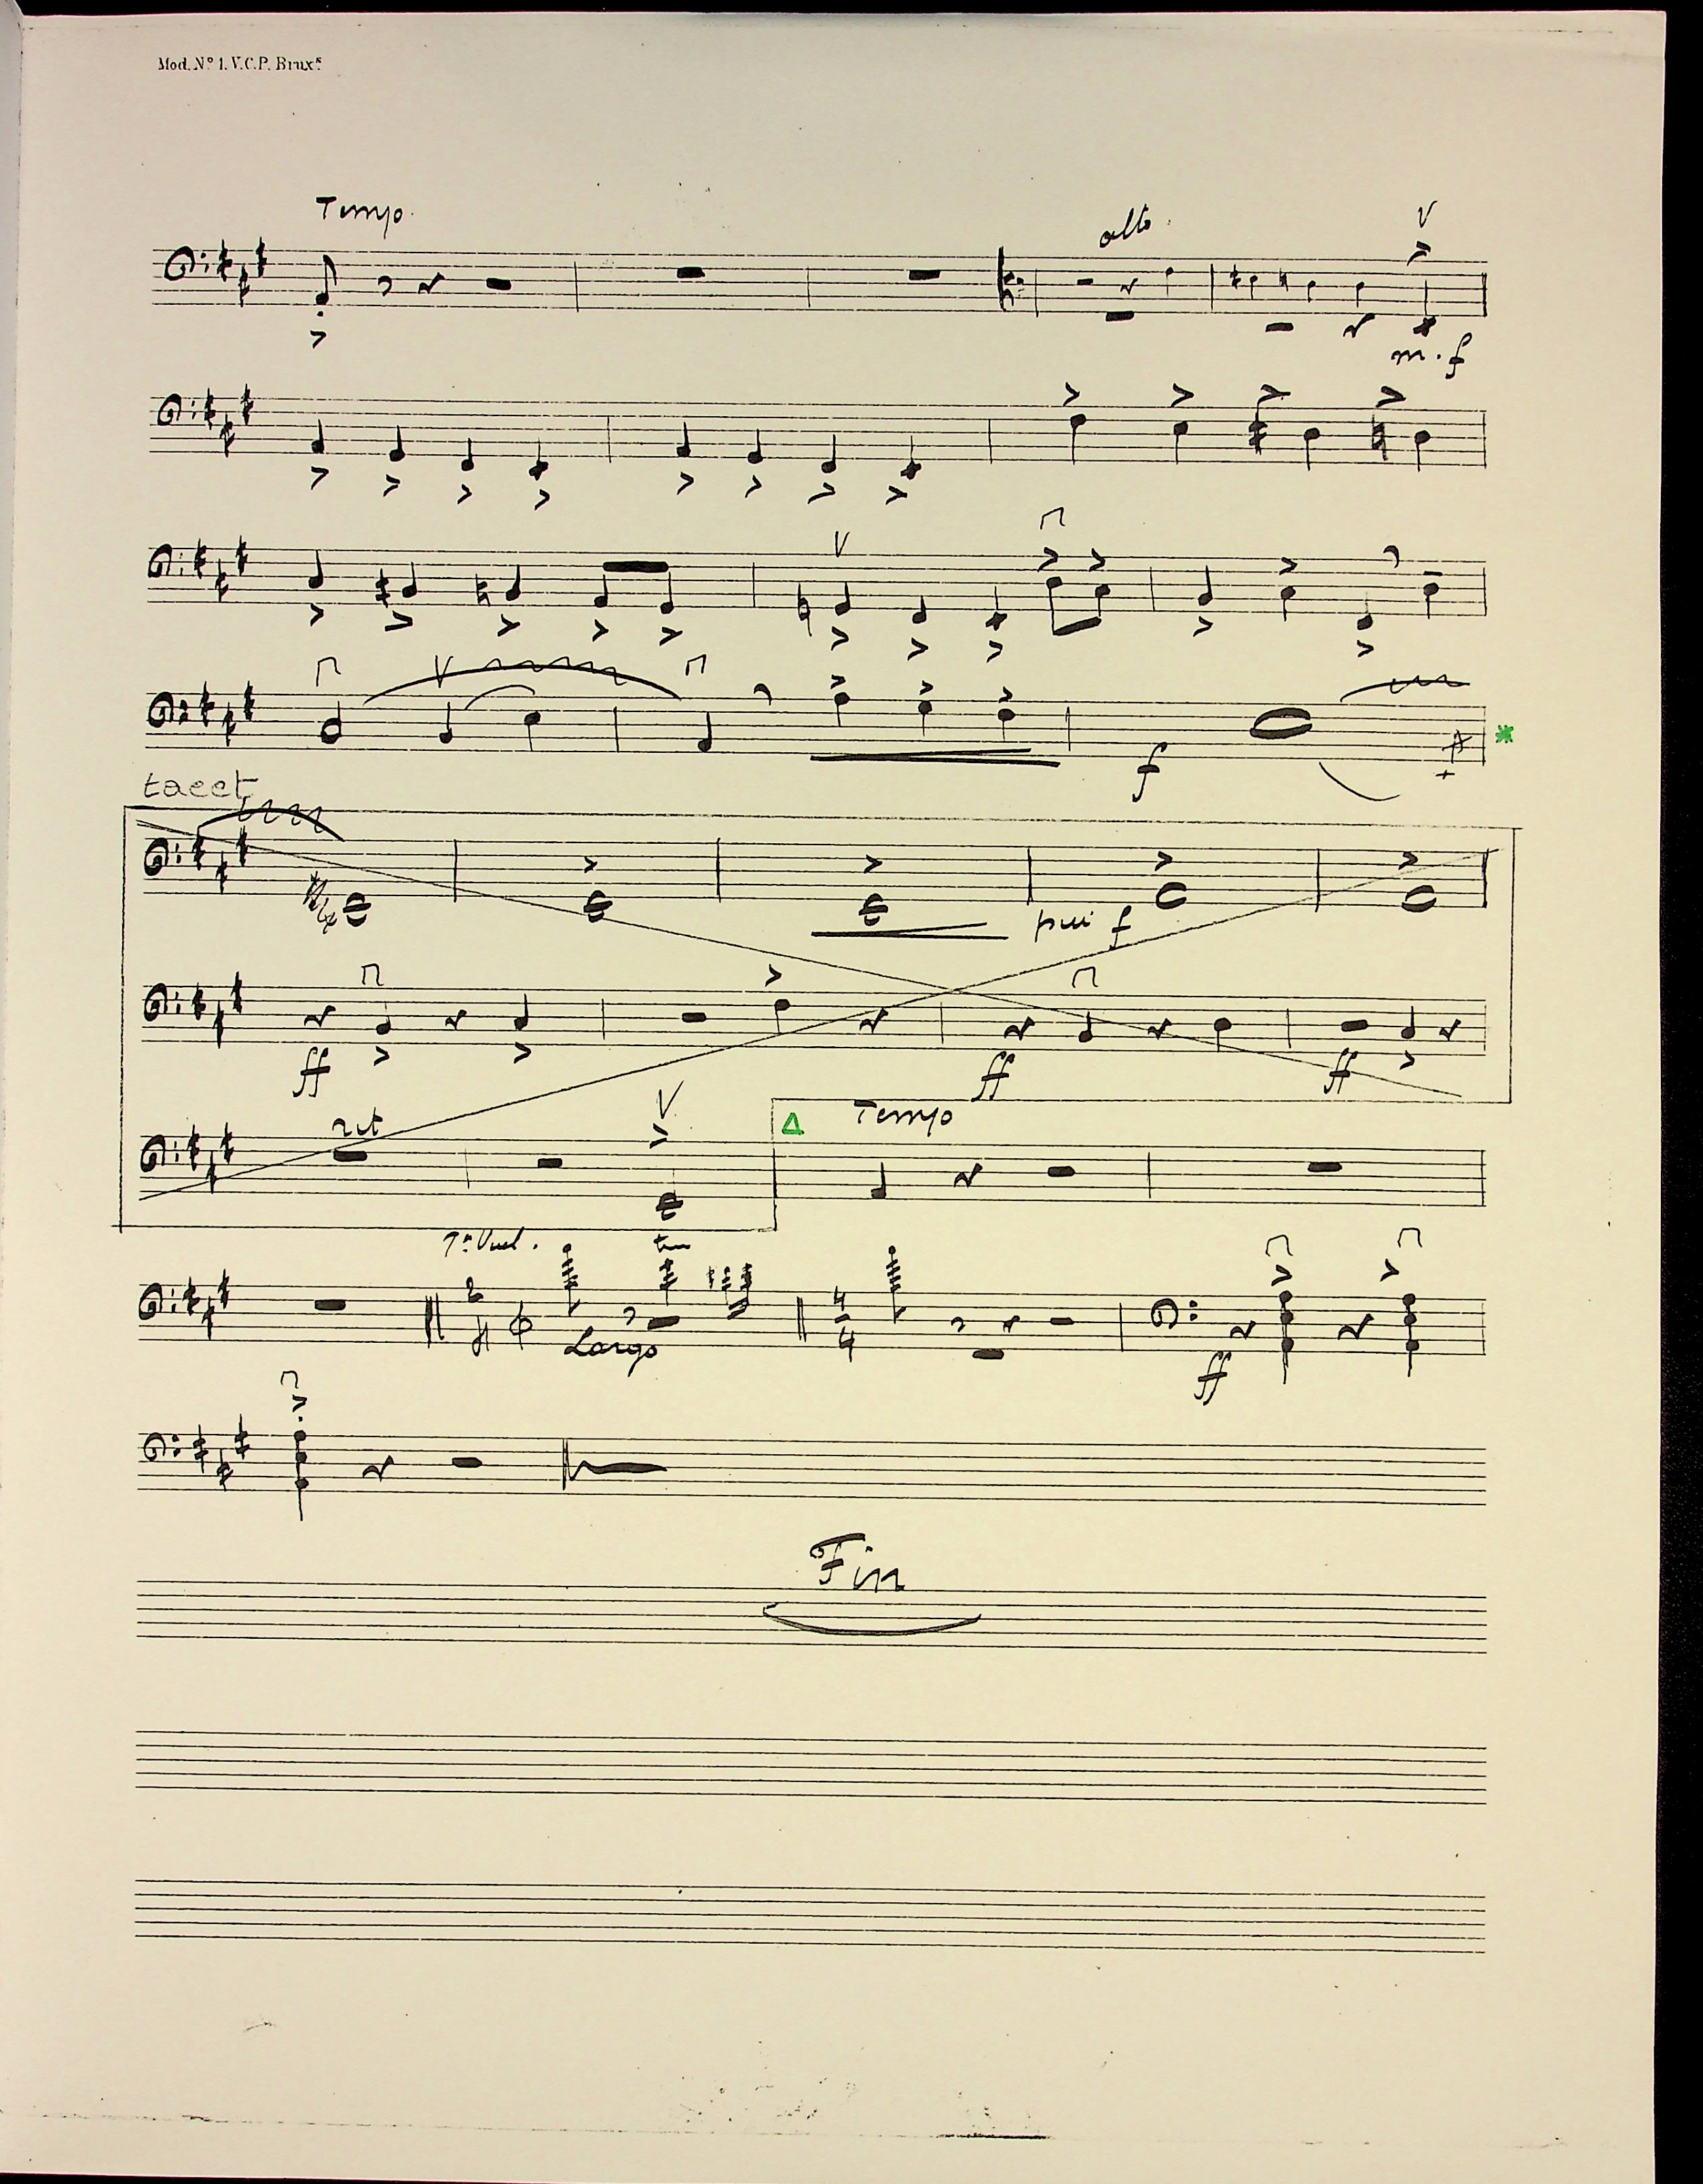 Mod. Nº 1. V.C.P. Bruxˢ
Tempo.
alto.
m.f
f
tacet
piu f
ff
ff
ff
rit
Δ Tempo
tr
2
4
Largo
4
4
ff
Fin